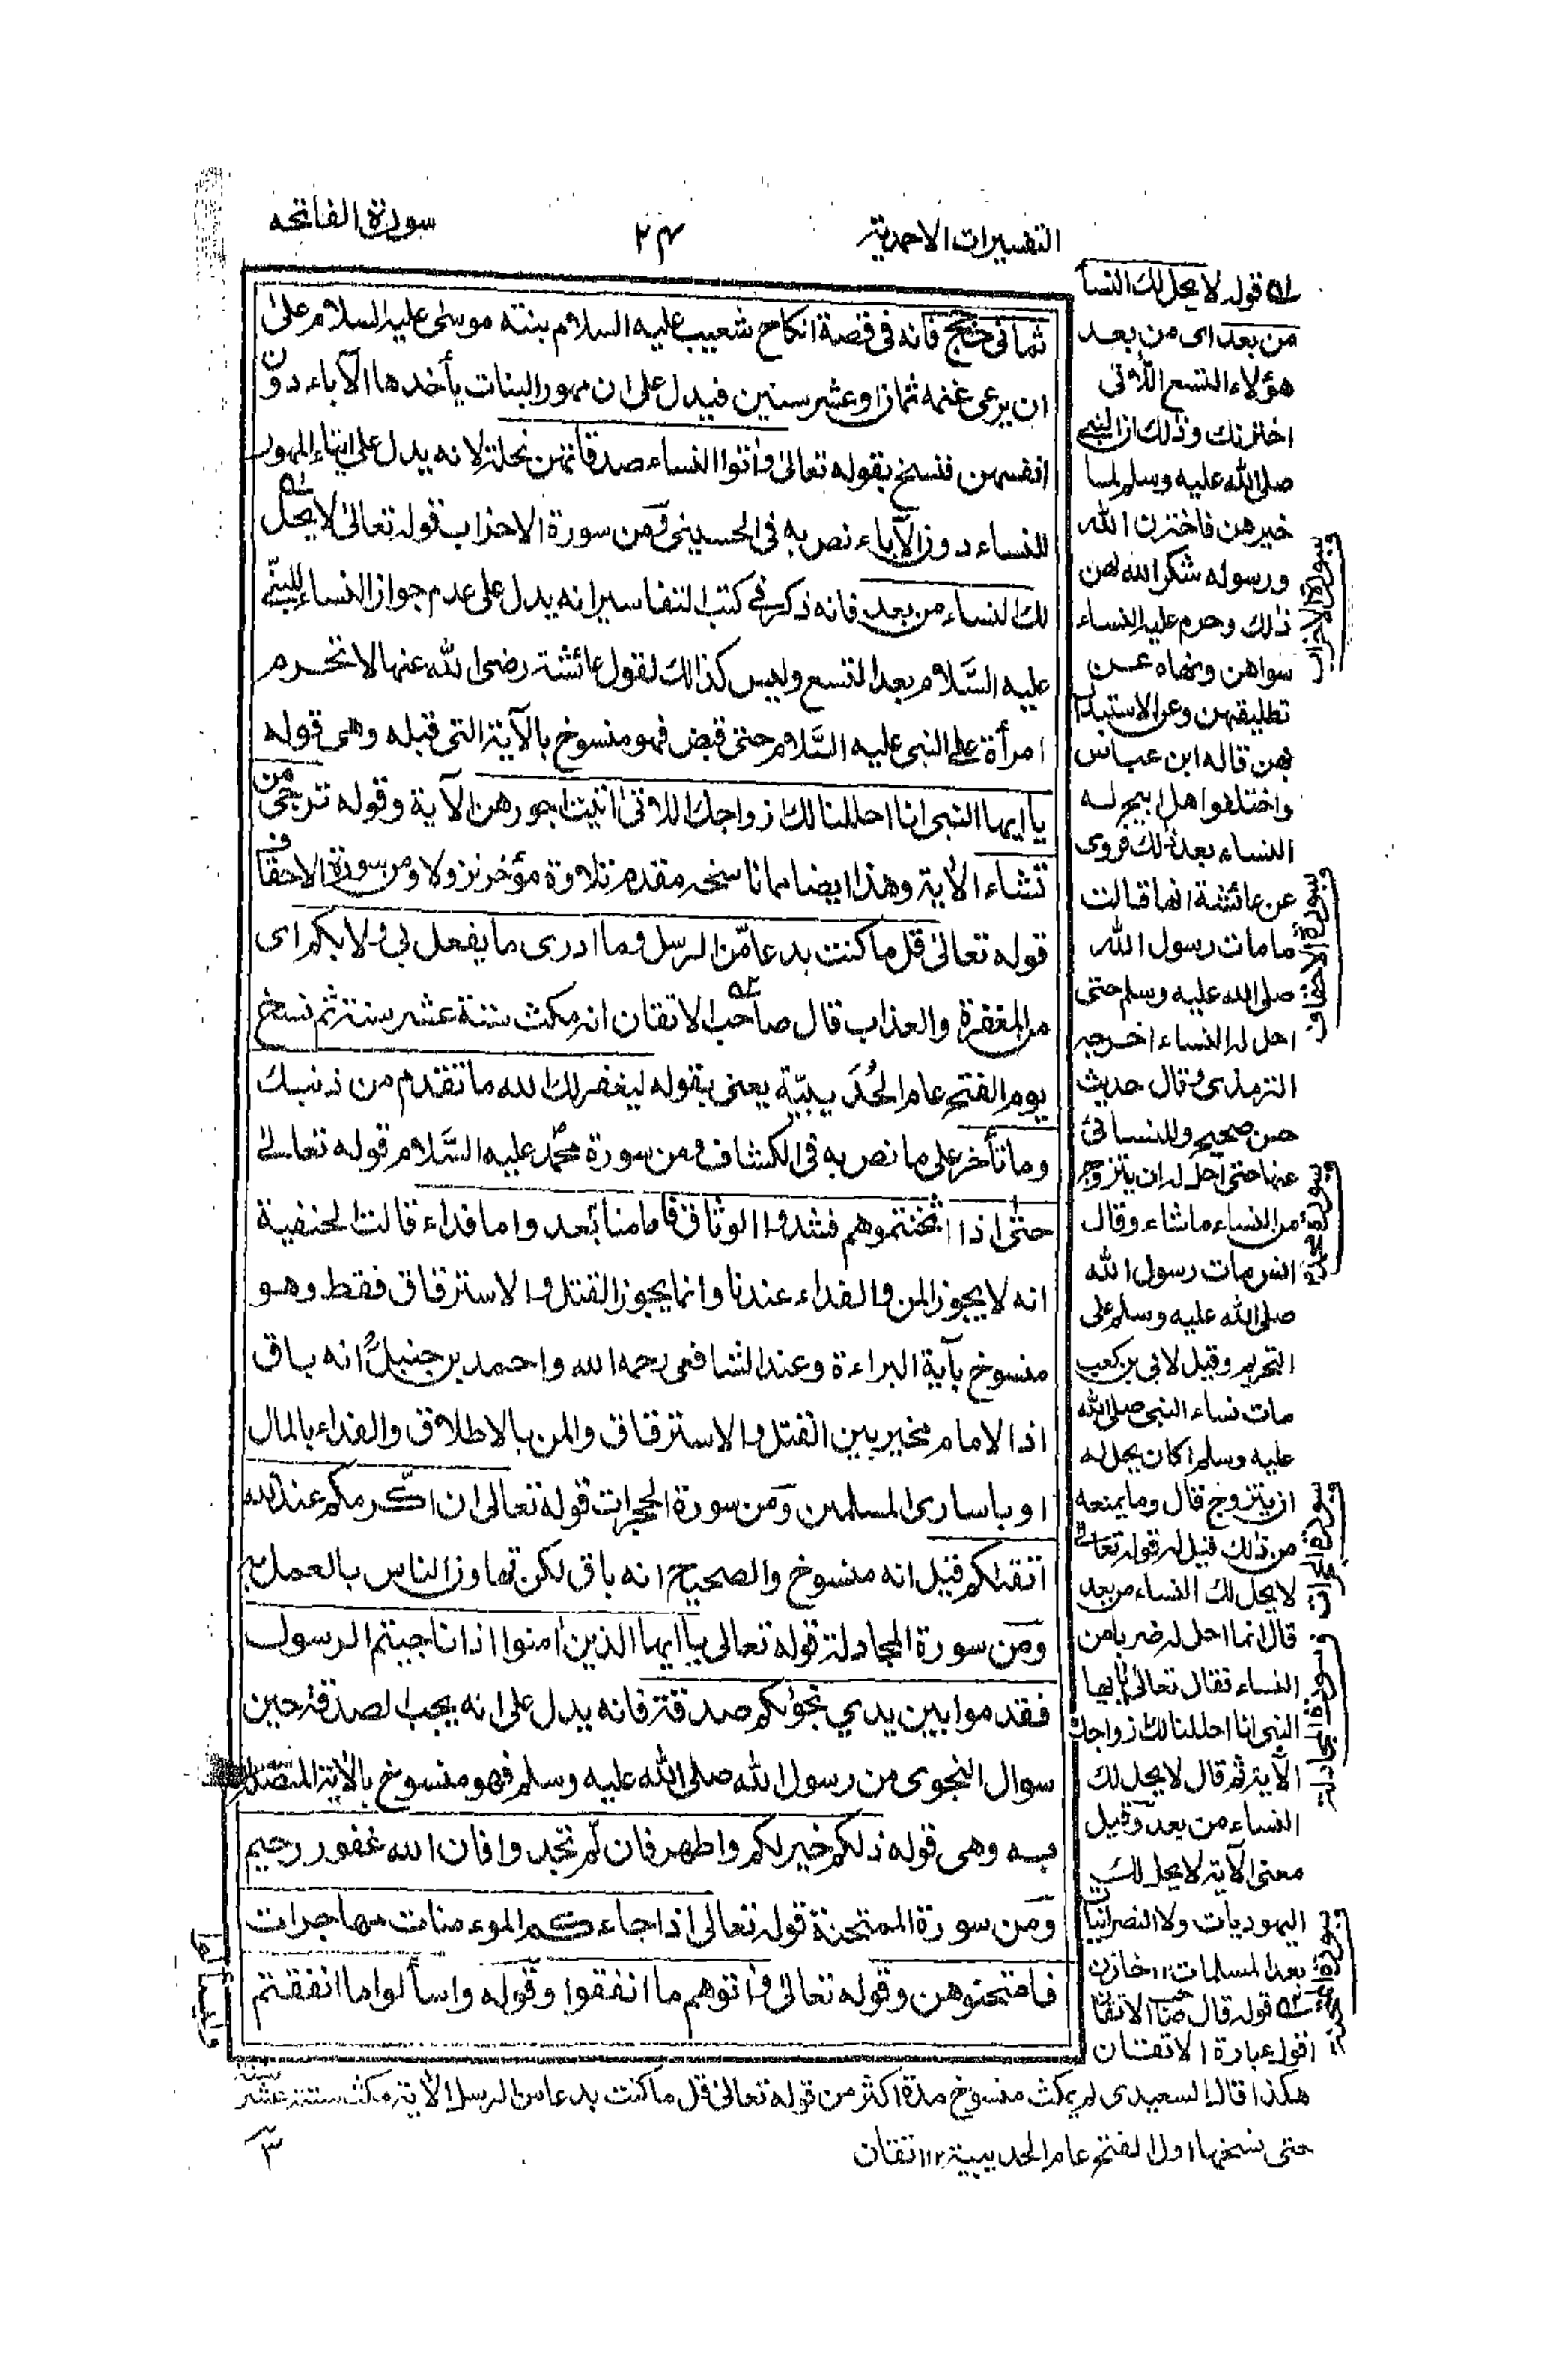 التفسيرات الاحمدية
٢٤
سورة الفاتحه
ثمانى حجج فانه فى قصة انكاح شعيب عليه السلام بنته موسى عليه السلام على
ان يرعى غنمه ثمان او عشر سنين فيدل على ان مهور البنات يأخدها الآباء دون
انفسهن فنسخ بقوله تعالى وآتوا النساء صدقاتهن نحلة لانه يدل على ايتاء المهور
للنساء دون الآباء نص به فى الحسينى ومن سورة الاحزاب قوله تعالى لا يحل
لك النساء من بعد فانه ذكر فى كتب التفاسير انه يدل على عدم جواز النساء للنبى
عليه السَّلام بعد التسع وليس كذالك لقول عائشة رضى الله عنها لا تحرم
امرأة على النبى عليه السَّلام حتى قبض فهو منسوخ بالآية التى قبله وهى قوله
يا ايها النبى انا احللنا لك ازواجك اللاتى اتيت اجورهن الآية وقوله ترجى من
تشاء الأية وهذا ايضا مما ناسخه مقدم تلاوة مؤخر نزولا ومن سورة الاحقاف
قوله تعالى قل ما كنت بدعا مّن الرسل وما ادرى ما يفعل بى ولا بكم اى
من المغفرة والعذاب قال صاحب الاتقان انه مكث ستة عشر سنة ثم نسخ
يوم الفتح عام الحُدَيبيّة يعنى بقوله ليغفر لك الله ما تقدم من ذنبك
وما تأخر على ما نص به فى الكشاف ومن سورة محمّد عليه السَّلام قوله تعالى
حتّى اذا اثخنتموهم فشدوا الوثاق فاما منا بعد واما فداء قالت الحنفية
انه لا يجوز المن والفداء عندنا وانما يجوز القتل والاسترقاق فقط وهو
منسوخ بآية البراءة وعند الشافعى رحمه الله واحمد بن حنبلؒ انه باق
اذا الامام مخير بين القتل والاسترقاق والمن بالاطلاق والفداء بالمال
او باسارى المسلمين ومن سورة الحجرات قوله تعالى ان اكرمكم عند الله
اتقىكم قيل انه منسوخ والصحيح انه باق لكن تهاون الناس بالعمل به
ومن سورة المجادلة قوله تعالى يا ايها الذين امنوا اذا ناجيتم الرسول
فقدموا بين يدي نجوىكم صدقة فانه يدل على انه يجب الصدقة حين
سوال النجوى من رسول الله صلى الله عليه وسلم فهو منسوخ بالأية المتصلة
به وهى قوله ذلكم خير لكم واطهر فان لّم تجدوا فان الله غفور رحيم
ومن سورة الممتحنة قوله تعالى اذا جاءكم الموءمنات مهاجرات
فامتحنوهن وقوله تعالى وأتوهم ما انفقوا وقوله واسألوا ما انفقتم
له قوله لا يحل لك النسا
من بعد اى من بعد
هؤلاء التسع اللّاتى
اخترنك وذلك ان النبى
صلى الله عليه وسلم لما
خيرهن فاخترن الله
ورسوله شكر الله لهن
ذلك وحرم عليه النساء
سواهن ونهاه عن
تطليقهن وعن الاستبدال
بهن قاله ابن عباس
واختلفوا هل ابيح له
النساء بعد ذلك فروى
عن عائشة انها قالت
ما مات رسول الله
صلى الله عليه وسلم حتى
احل له النساء اخرجه
الترمذى وقال حديث
حسن صحيح وللنسائى
عنها حتى احل له ان يتزوج
من النساء ما شاء وقال
انس مات رسول الله
صلى الله عليه وسلم على
التحريم وقيل لابى بن كعب
مات نساء النبى صلى الله
عليه وسلم اكان يحل له
ان يتزوج قال وما يمنعه
من ذلك قيل له قوله تعالى
لا يحل لك النساء من بعد
قال انما احل له ضربا من
النساء فقال تعالى يا ايها
النبى انا احللنا لك ازواجك
الآية ثم قال لا يحل لك
النساء من بعد وقيل
معنى الآية لا يحل لك
اليهوديات ولا النصرانيات
بعد المسلمات ١٢ خازن
قوله قال صاحب الاتقان
اقول عبارة الاتقان
هكذا قال السعيدى لم يمكث منسوخ مدة اكثر من قوله تعالى قل ما كنت بدعا من الرسل الأية مكث ستة عشر سنة
حتى نسخها اول الفتح عام الحديبية ١٢ اتقان
وسورة الاحزاب
وسورة الاحقاف
وسورة محمد
وسورة الحجرات
وسورة المجادلة
وسورة الممتحنة
٣